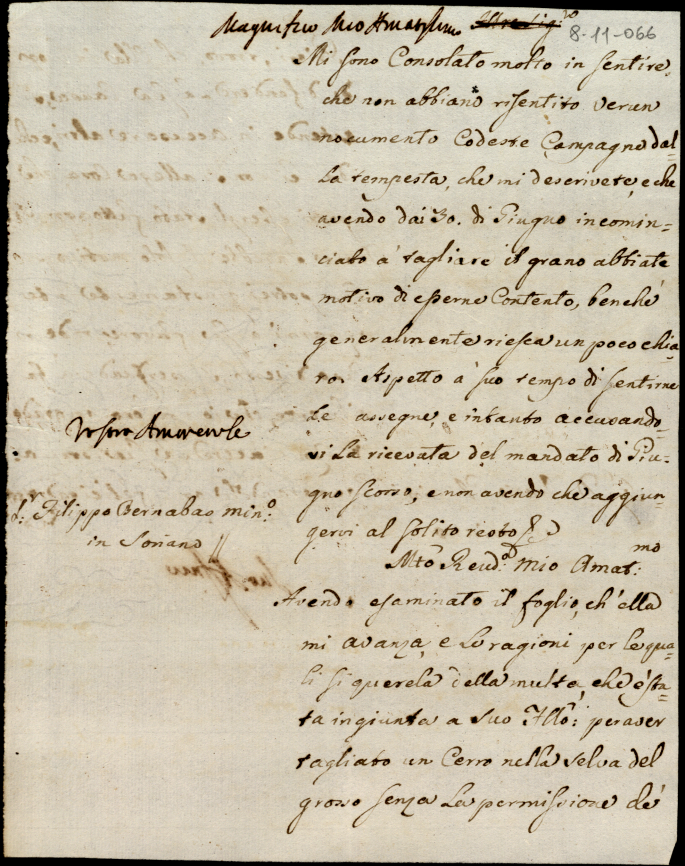 Magnifico Mio Amatissimo 8-11-066
Mi sono Consolato molto in sentire,
che non abbiano risentito verun
nocumento Codeste Campagne dal=
la tempesta, che mi descrivete, e che
avendo dai 30. di Giugno incomin=
ciato à tagliare il grano abbiate
motivo di esserne Contento, benchè
generalmente riesca un poco chia
ro. Aspetto à suo tempo di sentirne
le assegne, e intanto accusando=
vi la ricevuta del mandato di Giu=
gno scorso, e non avendo che aggiun
gervi al solito resto
Vostro Amorevole
S.r Filippo Bernabao min.o
in Soriano
Mto Revd.o mio Amat.mo
Avendo esaminato il foglio, ch'ella
mi avanza, e le ragioni per le qua=
li si querela della multa, che è sta=
ta ingiunta a suo per aver
tagliato un Cerro nella selva del
grosso senza la permissione de'